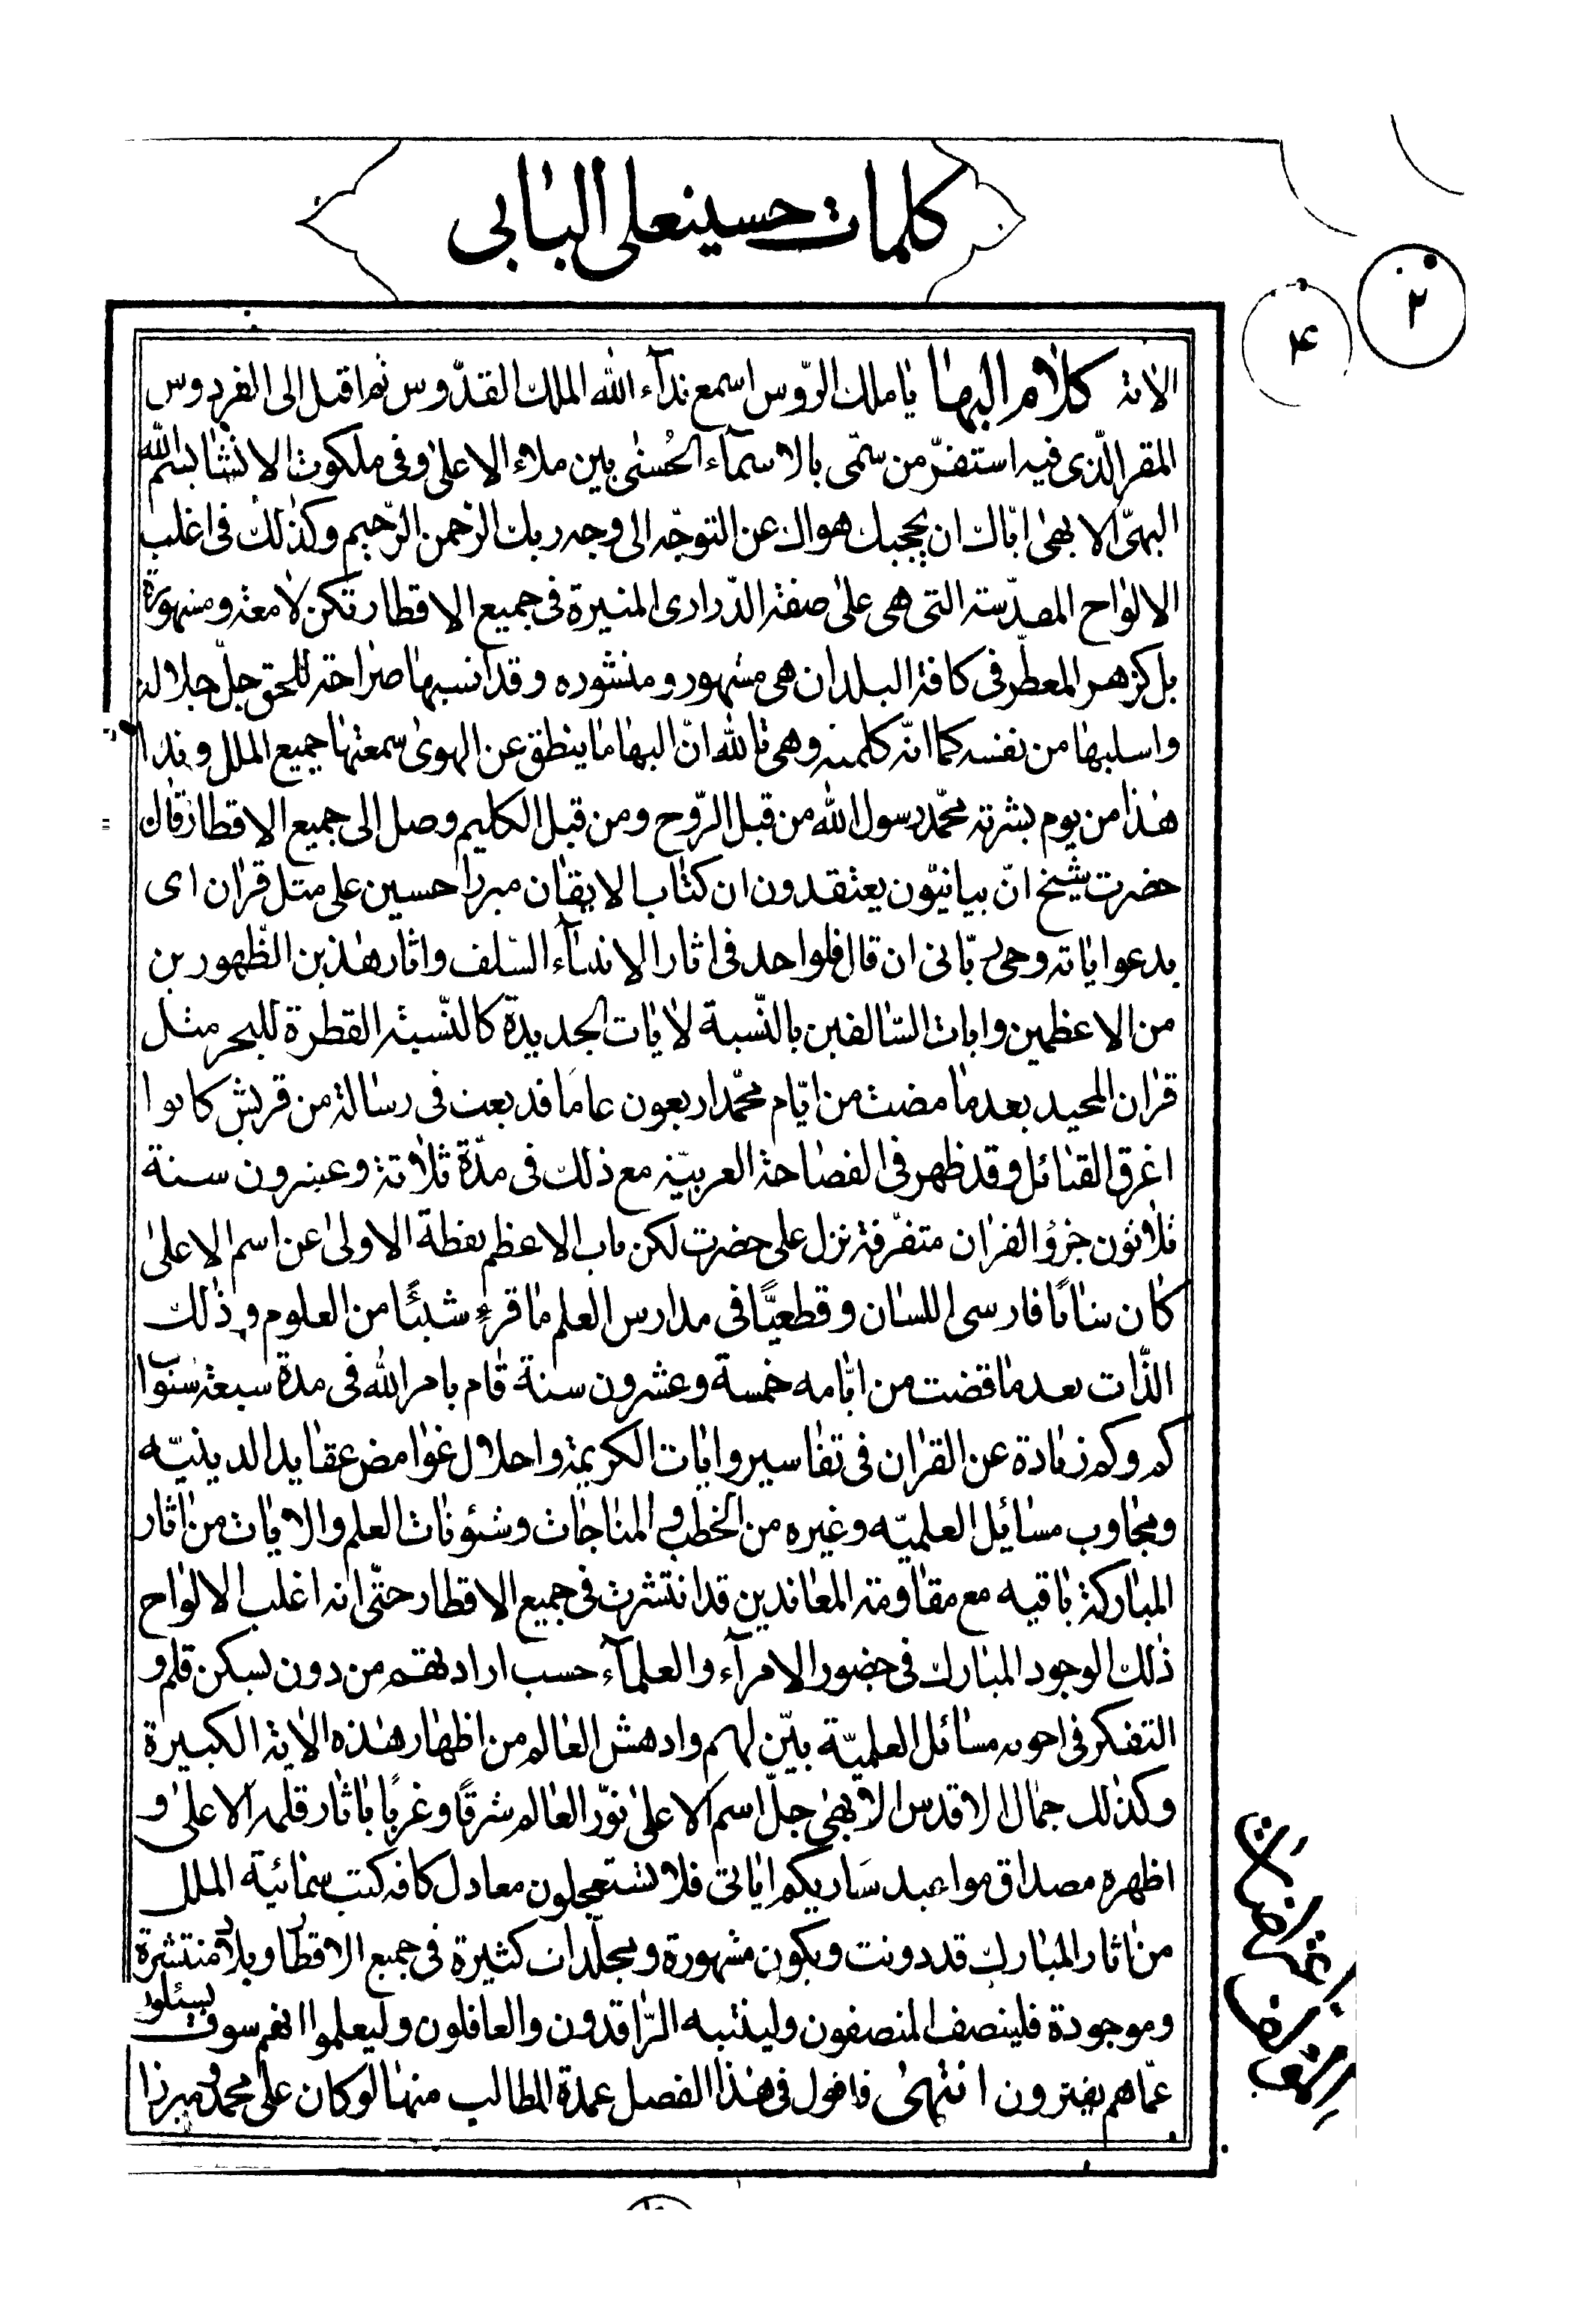 كلمات حسينعلى البابى
٢
۴
الاته كلام البها يا ملك الرّوس اسمع ندآء الله الملك القدّوس ثم اقبل الى الفردوس
المقر الّذى فيه استقرّ من سمّى بالاسمآء الحُسنى بين ملاء الاعلى وفى ملكوت الانشا بسم الله
البهىّ الابهى ايّاك ان يحجبك هواك عن التوجّه الى وجه ربك الرّحمن الرّحيم وكذلك فى اغلب
الالواح المقدّسته التى هى على صفته الدّرارى المنيرة فى جميع الاقطار تكن لامعته ومشهورة
بل كزهر المعطّر فى كافته البلدان هى مشهور ومنشوره وقد انسبها صراحته للحق جلّ جلاله
واسلبها من نفسه كما انّه كلمته وهى تالله انّ البها ما ينطق عن الهوى سمعتها جميع الملل وندا
هذا من يوم بشرته محمّد رسول الله من قبل الرّوح ومن قبل الكليم وصل الى جميع الاقطار قال
حضرت شيخ انّ بيانيّون يعتقدون ان كتاب الايقان ميرزا حسين على مثل قران اى
يدعو اياته وحى ربّانى ان قال فلواحد فى اثار الانبيآء السّلف واثار هذين الظّهورين
من الاعظمين وايات السّالفين بالنّسبة لايات الجديدة كالنّسبته القطرة للبحر مثل
قران المجيد بعد ما مضت من ايّام محمّد اربعون عامًا قد بعث فى رسالته من قريش كانوا
اغرق القبائل وقد ظهر فى الفصاحته العربيّه مع ذلك فى مدّة ثلاثة وعشرون سنة
ثلاثون جزؤ القران متفرّقة نزل على حضرت لكن باب الاعظم نقطة الاولى عن اسم الاعلى
كان شابًا فارسى اللسان وقطعيًّا فى مدارس العلم ما قرء شيئًا من العلوم و ذلك
الذّات بعد ما قضت من ايّامه خمسة وعشرون سنة قام بامر الله فى مدة سبعة سنوات
كم وكم زيادة عن القران فى تفاسير وايات الكريمة واحلال غوامض عقايد الدينيّه
ومجاوب مسائل العلميّه وغيره من الخطب و المناجات وشئونات العلم والايات من اثار
المباركة باقيه مع مقاومته المعاندين قد انتشرت فى جميع الاقطار حتّى انه اغلب الالواح
ذلك الوجود المبارك فى حضور الامرآء والعلمآء حسب ارادتهم من دون سكن قلم و
التفكر فى اجوبه مسائل العلميّة بيّن لهم وادهش العالم من اظهار هذه الاية الكبيرة
وكذلك جمال الاقدس الابهى جلّ اسم الاعلى نوّر العالم شرقًا وغربًا باثار قلمه الاعلى و
اظهره مصداق مواعيد ساريكم اياتى فلا تستعجلون معادل كافه كتب سمائية الملل
من اثار المبارك قد دونت ويكون مشهورة ومجلّدات كثيرة فى جميع الاقطار وبلاد منتشرة
وموجودة فلينصف المنصفون ولينتبه الرّاقدون والغافلون وليعلموا انهم سوف يسئلون
عمّاهم يفترون انتهى فاقول فى هذا الفصل عمدة المطالب منها لو كان على محمّد وميرزا